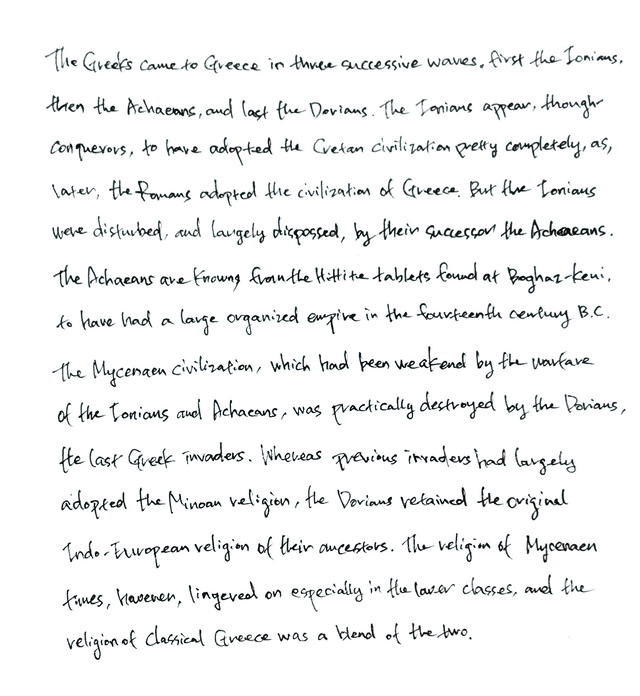 The Greeks came to Greece in three successive waves, first the Ionians,
then the Achaeans, and last the Dorians. The Ionians appear, though
conquerors, to have adopted the Cretan civilization pretty completely, as,
later, the Romans adopted the civilization of Greece. But the Ionians
were disturbed, and largely dispossed, by their successor the Achaeans.
The Achaeans are known, from the Hittite tablets found at Boghaz-Keui,
to have had a large organized empire in the fourteenth century B.C.
The Mycenaen civilization, which had been weakend by the warfare
of the Ionians and Achaeans, was practically destroyed by the Dorians,
the last Greek invaders. Whereas previous invaders had largely
adopted the Minoan religion, the Dorians retained the original
Indo-European religion of their ancestors. The religion of Mycenaen
times, however, lingered on especially in the lower classes, and the
religion of classical Greece was a blend of the two.